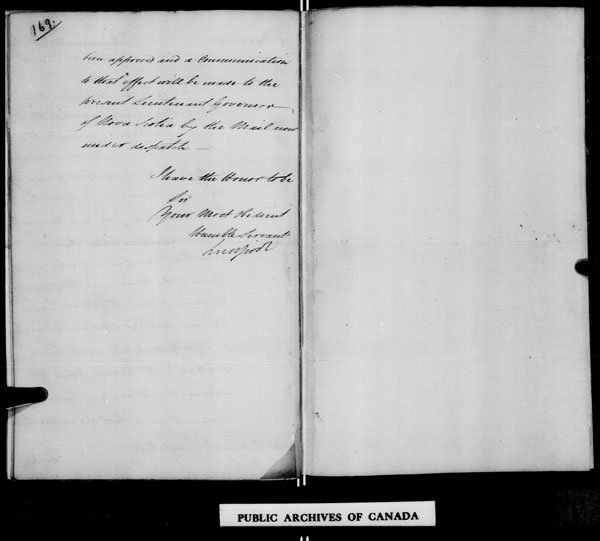 169.
been approved and a Communication
to that effect will be made to the
present Lieutenant Governor
of Nova Scotia by the Mail now
under despatch —
I have the Honor to be
Sir
Your Most Obedient
Humble Servant
Liverpool
PUBLIC ARCHIVES OF CANADA